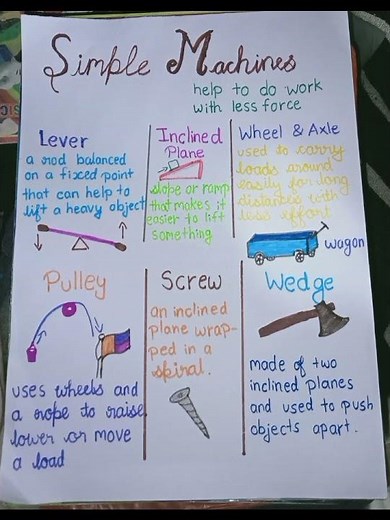 Simple Machines
help to do work
with less force
Lever
a rod balanced
on a fixed point
that can help to
lift a heavy object
Inclined
Plane
slope or ramp
that makes it
easier to lift
something
Wheel & Axle
used to carry
loads around
easily for long
distances with
less effort
wagon
Pulley
uses wheels and
a rope to raise,
lower or move
a load
Screw
an inclined
plane wrap-
ped in a
spiral.
Wedge
made of two
inclined planes
and used to push
objects apart.